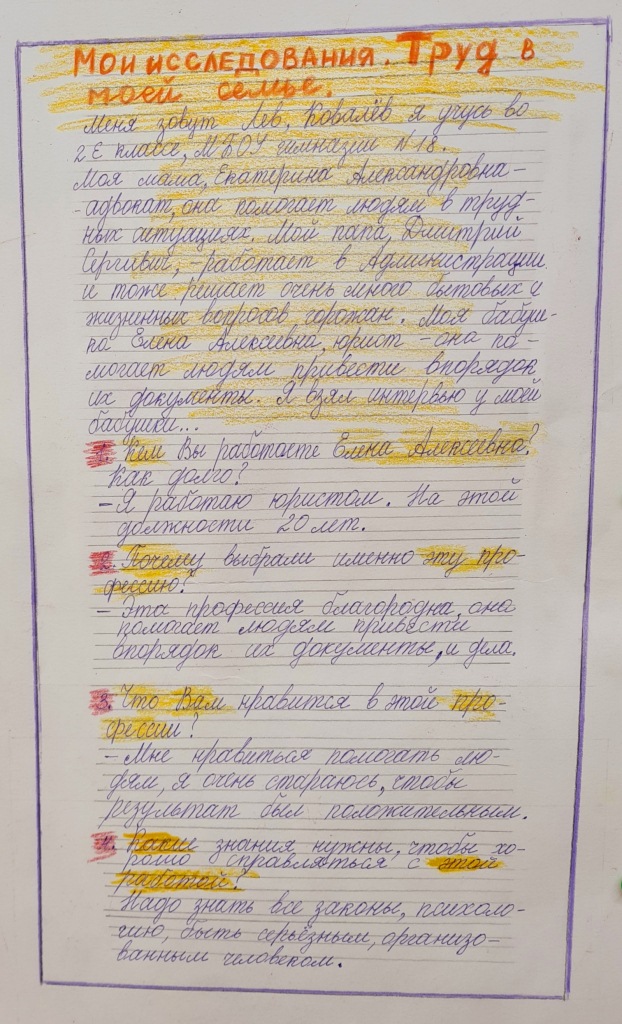 Мои исследования. Труд в
моей семье.
Меня зовут Лев, Ковалёв я учусь во
2 Е классе, МБОУ гимназии N 18.
Моя мама, Екатерина Александровна-
-адвокат, она помогает людям в труд-
ных ситуациях. Мой папа, Дмитрий
Сергивич, -работает в Администрации
и тоже решает очень много бытовых и
жизненных вопросов горожан. Моя бабуш-
ка Елена Алексеевна, юрист - она по-
могает людям привести впорядок
их документы. Я взял интервью у моей
бабушки...
1. Кем Вы работаете Елена Алексеевна?
Как долго?
- Я работаю юристом. На этой
должности 20 лет.
2. Почему выбрали именно эту про-
фессию?
- Эта профессия благородна, она
помогает людям привести
впорядок их документы, и дела.
3. Что Вам нравится в этой про-
фессии?
- Мне нравиться помогать лю-
дям, я очень стараюсь, чтобы
результат был положительным.
4. Какие знания нужны, чтобы хо-
рошо справляться с этой
работой?
Надо знать все законы, психоло-
гию, быть серьёзным, организо-
ванным человеком.